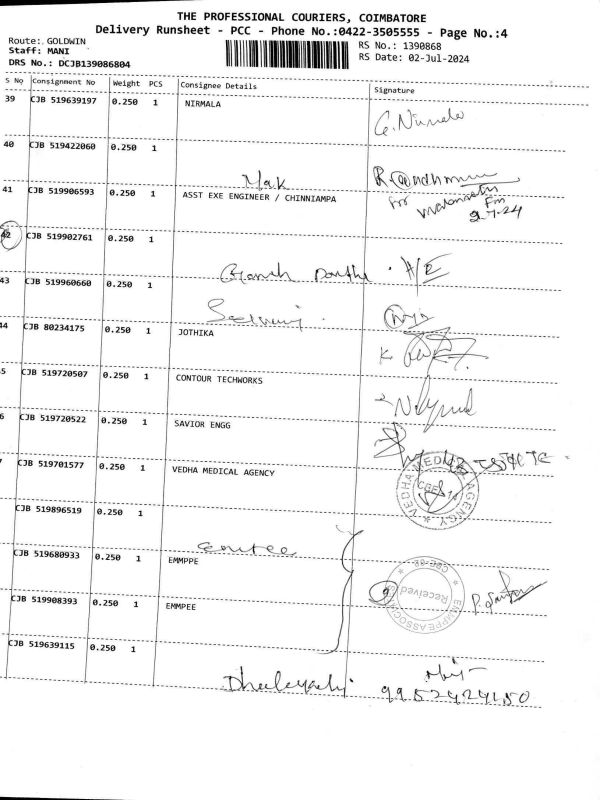 THE PROFESSIONAL COURIERS, COIMBATORE
Delivery Runsheet - PCC - Phone No.:0422-3505555 - Page No.:4
Route: GOLDWIN
Staff: MANI
DRS No.: DCJB139086804
RS No.: 1390868
RS Date: 02-Jul-2024
S No Consignment No Weight PCS Consignee Details Signature
39 CJB 519639197 0.250 1 NIRMALA G. Nirmala
40 CJB 519422060 0.250 1
Mak
41 CJB 519906593 0.250 1 ASST EXE ENGINEER / CHINNIAMPA
for
2-7-24
42 CJB 519902761 0.250 1
A/E
43 CJB 519960660 0.250 1
44 CJB 80234175 0.250 1 JOTHIKA
5 CJB 519720507 0.250 1 CONTOUR TECHWORKS
6 CJB 519720522 0.250 1 SAVIOR ENGG
CJB 519701577 0.250 1 VEDHA MEDICAL AGENCY
VEDHA MEDICAL AGENCY
CJB 519896519 0.250 1
CJB 519680933 0.250 1 EMMPPE
CJB 519908393 0.250 1 EMMPEE
Received
CJB 519639115 0.250 1
9952424150